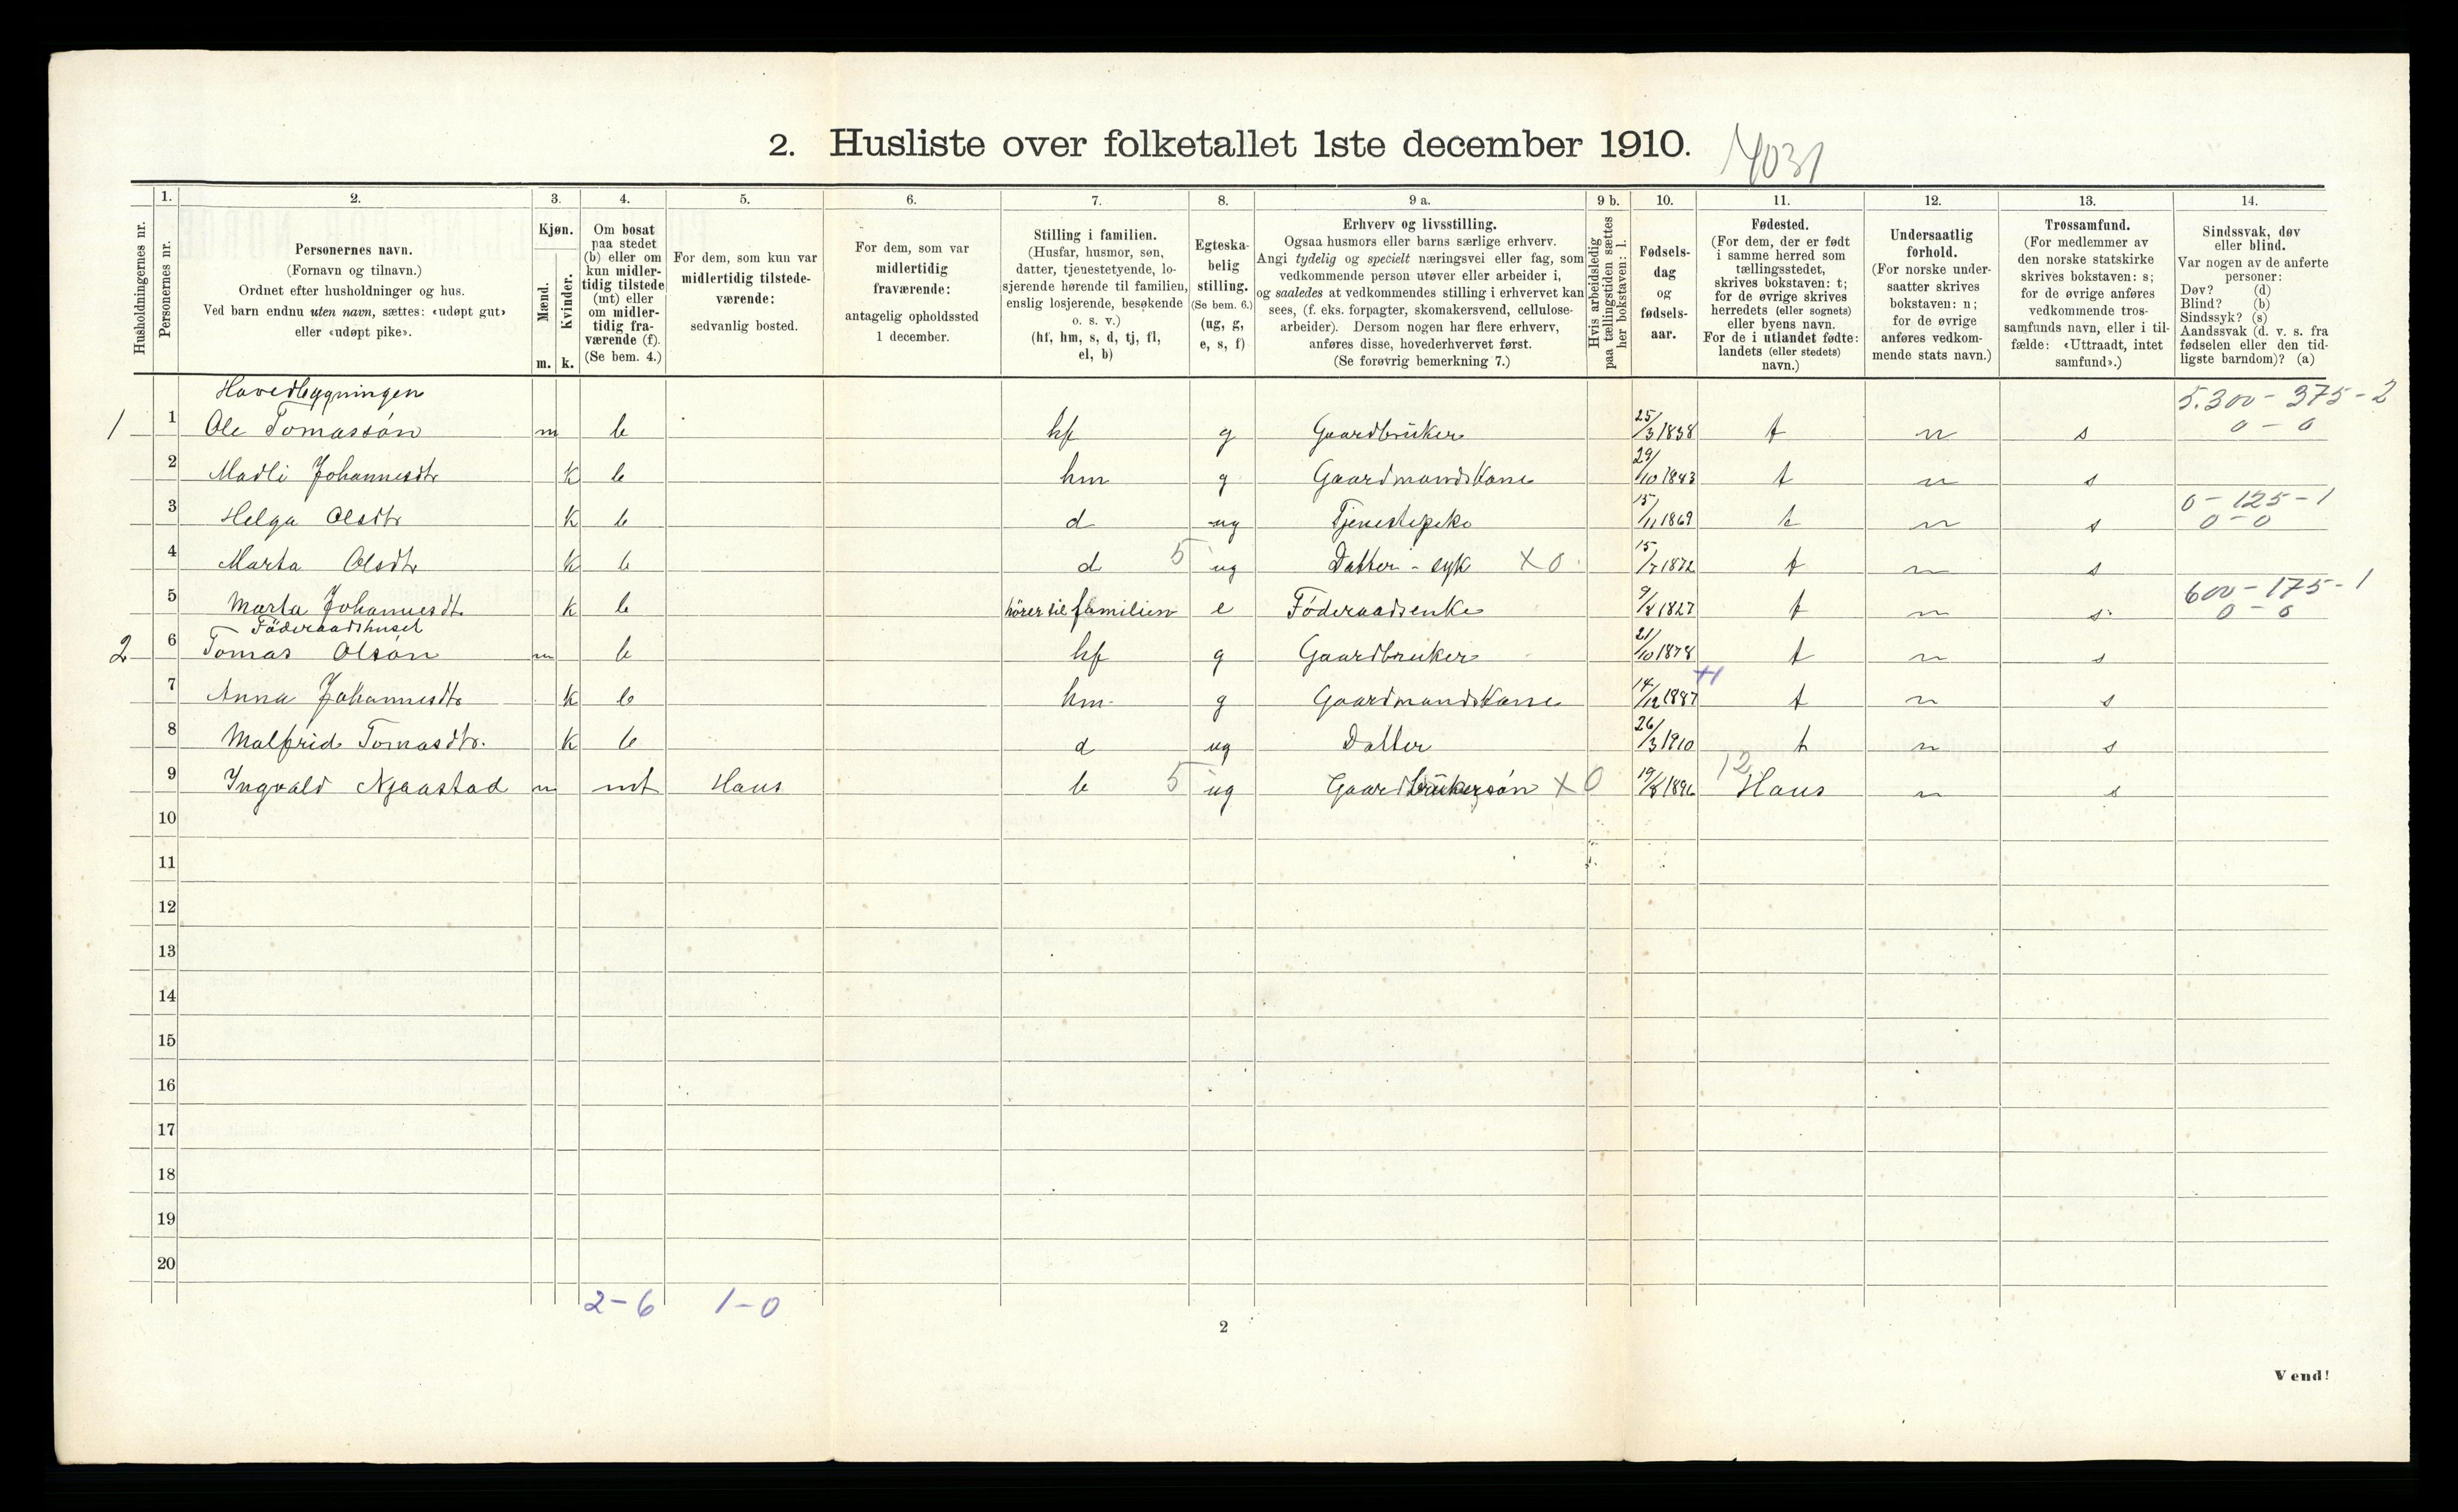 2. Husliste over folketallet 1ste december 1910.
4031
1. 2. 3. 4. 5. 6. 7. 8. 9 a. 9 b. 10. 11. 12. 13. 14.
Husholdningernes nr.
Personernes nr.
Personernes navn.
(Fornavn og tilnavn.)
Ordnet efter husholdninger og hus.
Ved barn endnu uten navn, sættes: «udøpt gut»
eller «udøpt pike».
Kjøn.
Mænd.
Kvinder.
m. k.
Om bosat
paa stedet
(b) eller om
kun midler-
tidig tilstede
(mt) eller
om midler-
tidig fra-
værende (f).
(Se bem. 4.)
For dem, som kun var
midlertidig tilstede-
værende:
sedvanlig bosted.
For dem, som var
midlertidig
fraværende:
antagelig opholdssted
1 december.
Stilling i familien.
(Husfar, husmor, søn,
datter, tjenestetyende, lo-
sjerende hørende til familien,
enslig losjerende, besøkende
o. s. v.)
(hf, hm, s, d, tj, fl,
el, b)
Egteska-
belig
stilling.
(Se bem. 6.)
(ug, g,
e, s, f)
Erhverv og livsstilling.
Ogsaa husmors eller barns særlige erhverv.
Angi tydelig og specielt næringsvei eller fag, som
vedkommende person utøver eller arbeider i,
og saaledes at vedkommendes stilling i erhvervet kan
sees, (f. eks. forpagter, skomakersvend, cellulose-
arbeider). Dersom nogen har flere erhverv,
anføres disse, hovederhvervet først.
(Se forøvrig bemerkning 7.)
Hvis arbeidsledig
paa tællingstiden sættes
her bokstaven: l.
Fødsels-
dag
og
fødsels-
aar.
Fødested.
(For dem, der er født
i samme herred som
tællingsstedet,
skrives bokstaven: t;
for de øvrige skrives
herredets (eller sognets)
eller byens navn.
For de i utlandet fødte:
landets (eller stedets)
navn.)
Undersaatlig
forhold.
(For norske under-
saatter skrives
bokstaven: n;
for de øvrige
anføres vedkom-
mende stats navn.)
Trossamfund.
(For medlemmer av
den norske statskirke
skrives bokstaven: s;
for de øvrige anføres
vedkommende tros-
samfunds navn, eller i til-
fælde: «Uttraadt, intet
samfund».)
Sindssvak, døv
eller blind.
Var nogen av de anførte
personer:
Døv? (d)
Blind? (b)
Sindssyk? (s)
Aandssvak (d. v. s. fra
fødselen eller den tid-
ligste barndom)? (a)
Hovedbygningen 5.300 - 375 - 2
1 1 Ole Tomassøn m b hf g Gaardbruker 25/3 1838 t n s 0 - 0
2 Madli Johannesdtr k b hm g Gaardmandskone 29/10 1843 t n s
3 Helga Olsdtr k b d ug Tjenestepike 15/11 1869 t n s 0 - 125 - 1 0 - 0
4 Marta Olsdtr k b d 5 ug Datter - syk X 0 15/7 1872 t n s
5 Marta Johannesdtr k b hører til familien e Föderaadsenke 9/8 1827 t n s 600 - 175 - 1 0 - 0
Föderaadshuset
2 6 Tomas Olsøn m b hf g Gaardbruker 21/10 1878 t n s
7 Anna Johannesdtr k b hm g Gaardmandskone 14/12 1887 t n s
8 Malfrid Tomasdtr. k b d ug Datter 26/3 1910 t n s
9 Ingvald Njaastad m mt Haus b 5 ug Gaardbrukersøn X 0 19/8 1896 12 Haus n s
10
11
12
13
14
15
16
17
18
19
20
2 - 6 1 - 0
2
Vend!